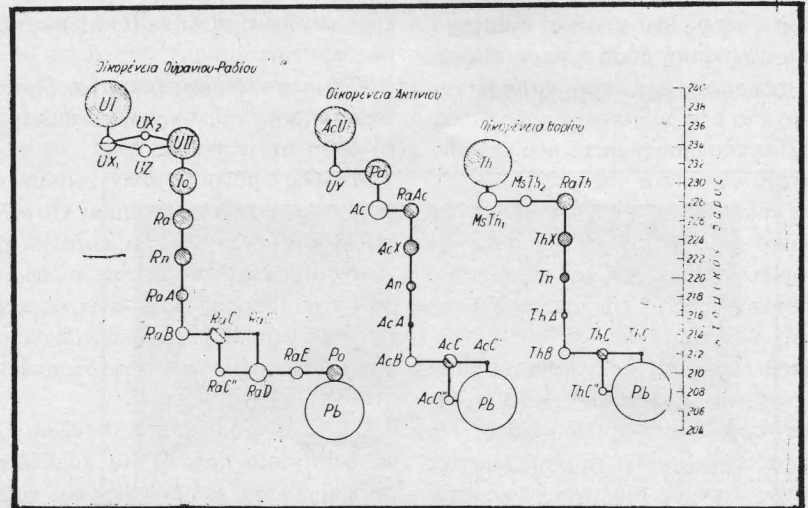 Οἰκογένεια Οὐρανίου-Ραδίου
UI
UX₂
UX₁
UZ
UII
Io
Ra
Rn
RaA
RaB
RaC
RaC'
RaC"
RaD
RaE
Po
Pb
Οἰκογένεια Ἀκτινίου
AcU
UY
Pa
Ac
RaAc
AcX
An
AcA
AcB
AcC
AcC'
AcC"
Pb
Οἰκογένεια Θορίου
Th
MsTh₁
MsTh₂
RaTh
ThX
Tn
ThA
ThB
ThC
ThC'
ThC"
Pb
240
238
236
234
232
230
228
226
224
222
220
218
216
214
212
210
208
206
204
Ἀτομικόν βάρος